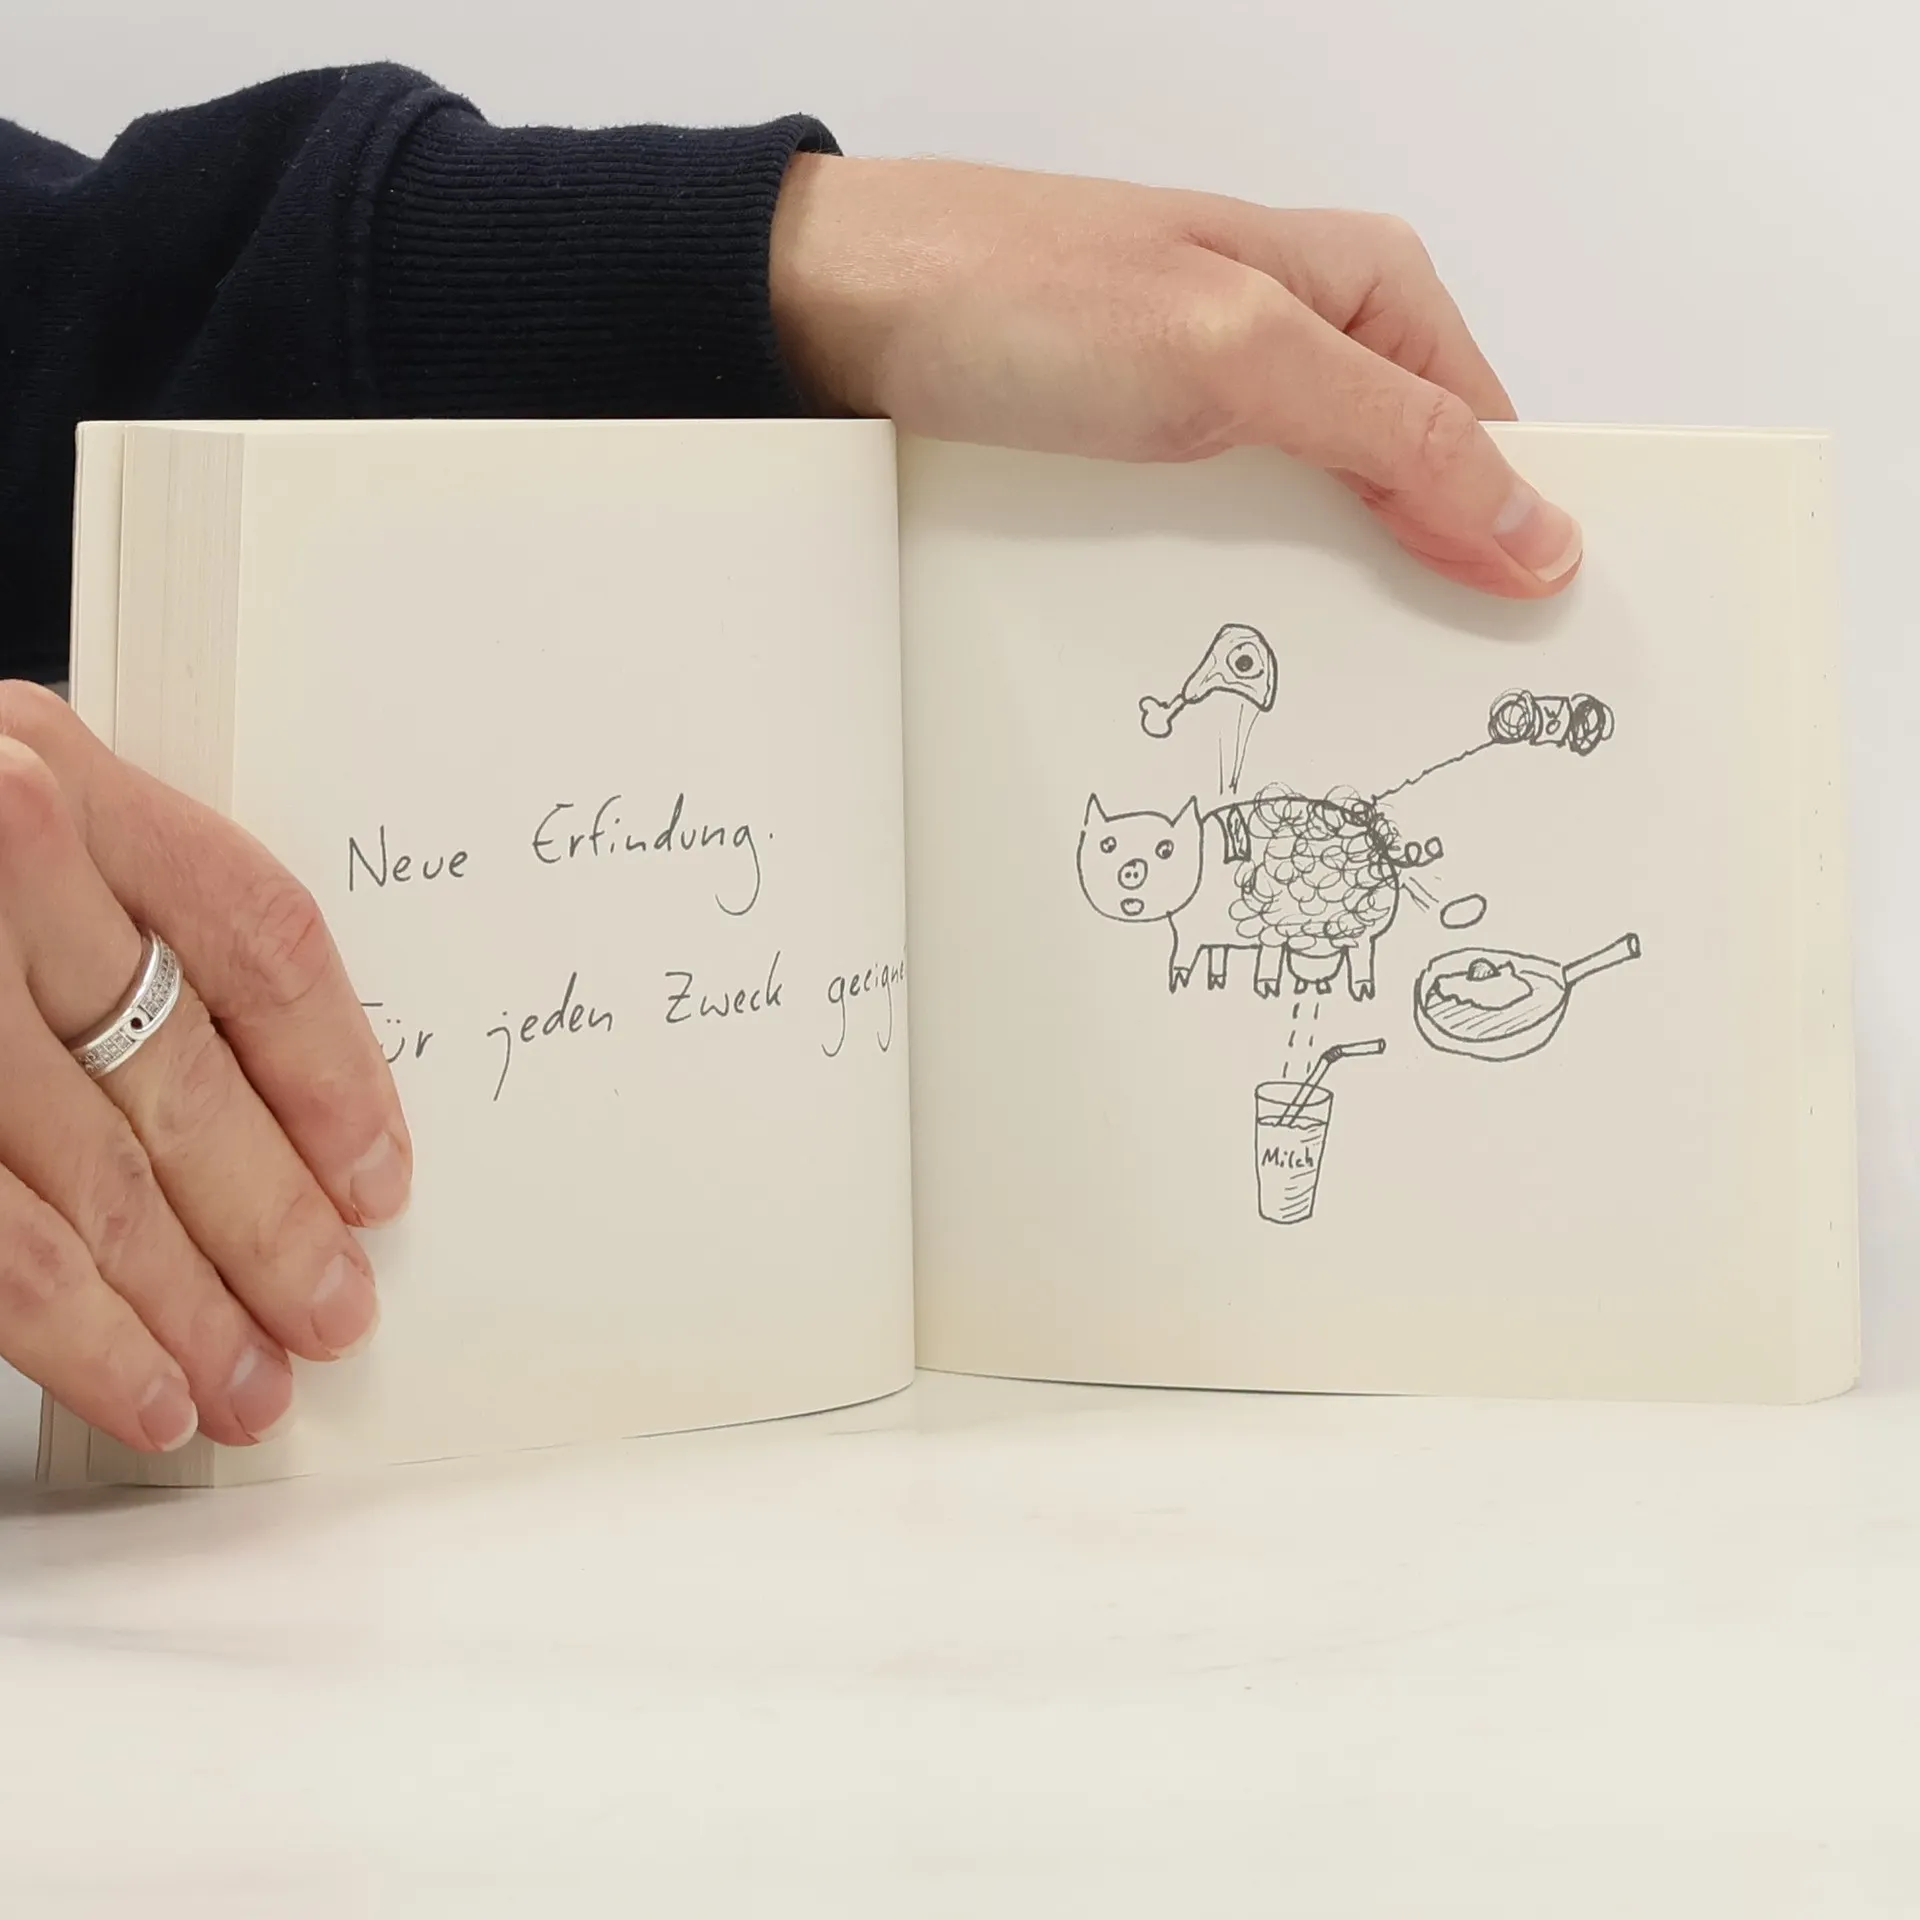 Neue Erfindung.
Für jeden Zweck geeigne
Milch